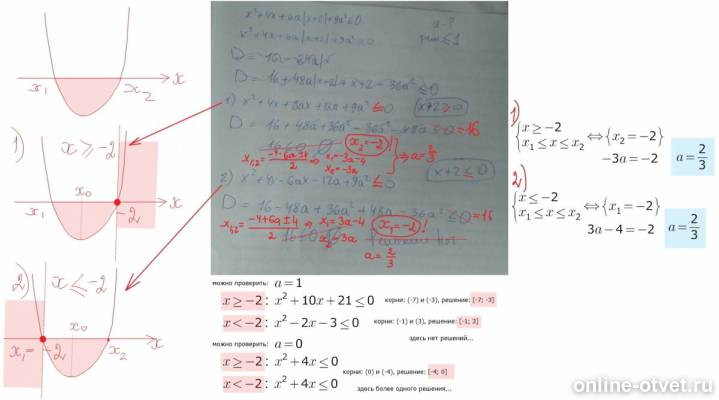 x
x₁
x₂
1)
x ≥ -2
x₀
x₁
-2
x
2)
x ≤ -2
x₀
x₁ = -2
x₂
x
x²+4x+6a|x+2|+9a²≤0
a-?
x²+4x+6a|x+2|+9a²=0
реш ≤ 1
D = 16 - 24a|x
D = 16+48a|x+2|+x+2-36a²≤0
1) x²+4x+6ax+12a+9a² ≤0
x+2≥0
D = 16+48a+36a²-36a²-48a≤0=16
16≤0
x₂=-2
x₁,₂ = -4-6a±4 / 2 ⇒ x₁=-3a-4
x₂=-3a
⇒ a = 2/3
x+2≤0
2) x²+4x-6ax-12a+9a² ≤0
D = 16-48a+36a²+48a-36a² ≤0=16
x₁,₂ = -4+6a±4 / 2 ⇒ x₁=3a-4
x₁=-2!
16≤0
x₂=3a
Решений нет
a = 2/3
1)
{x ≥ -2
x₁ ≤ x ≤ x₂ ⇔ {x₂ = -2}
-3a = -2
a = 2/3
2)
{x ≤ -2
x₁ ≤ x ≤ x₂ ⇔ {x₁ = -2}
3a - 4 = -2
a = 2/3
можно проверить: a = 1
x ≥ -2 : x² + 10x + 21 ≤ 0 корни: (-7) и (-3), решение: [-7; -3]
x < -2 : x² - 2x - 3 ≤ 0 корни: (-1) и (3), решение: [-1; 3]
здесь нет решений...
можно проверить: a = 0
x ≥ -2 : x² + 4x ≤ 0 корни: (0) и (-4), решение: [-4; 0]
x < -2 : x² + 4x ≤ 0 здесь более одного решения...
online-otvet.ru